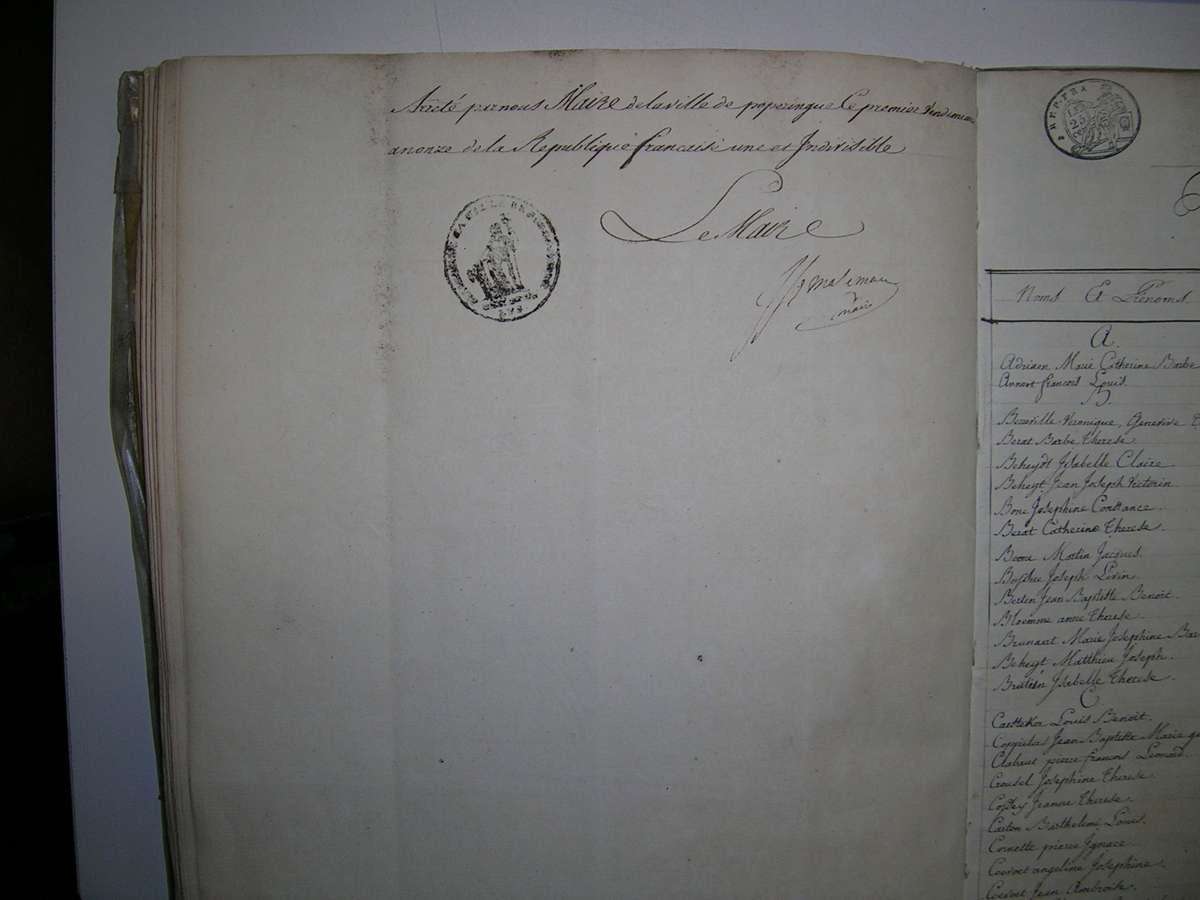 Arreté par nous Maire de la ville de poperingue Ce premier Vendemiaire
an onze de la Republique francaise une et Indivisible
Le Maire
maire
REP. FRA
25
Noms Et Prénoms
A
Adriaen Marie Catherine Barbe
Annart francois Louis
B
Bezaville Veronique, Genevieve
Berat Barbe Therese
Beheydt Isabelle Claire
Beheyt Jean Joseph Victorin
Bone Josephine Constance
Berat Catherine Therese
Martin Jacques
Joseph Livin
Berten Jean Baptiste Benoit
Bloemme anne Therese
Brunaut Marie Josephine Bar
Beheyt Matthieu Joseph
Isabelle Therese
C
Louis Benoit
Jean Baptiste Marie
Clabaut pierre francois Leonard
Crousel Josephine Therese
Jeanne Therese
Carton Barthelemi Louis
Cornette pierre Ignace
angeline Josephine
Jean Ambroise